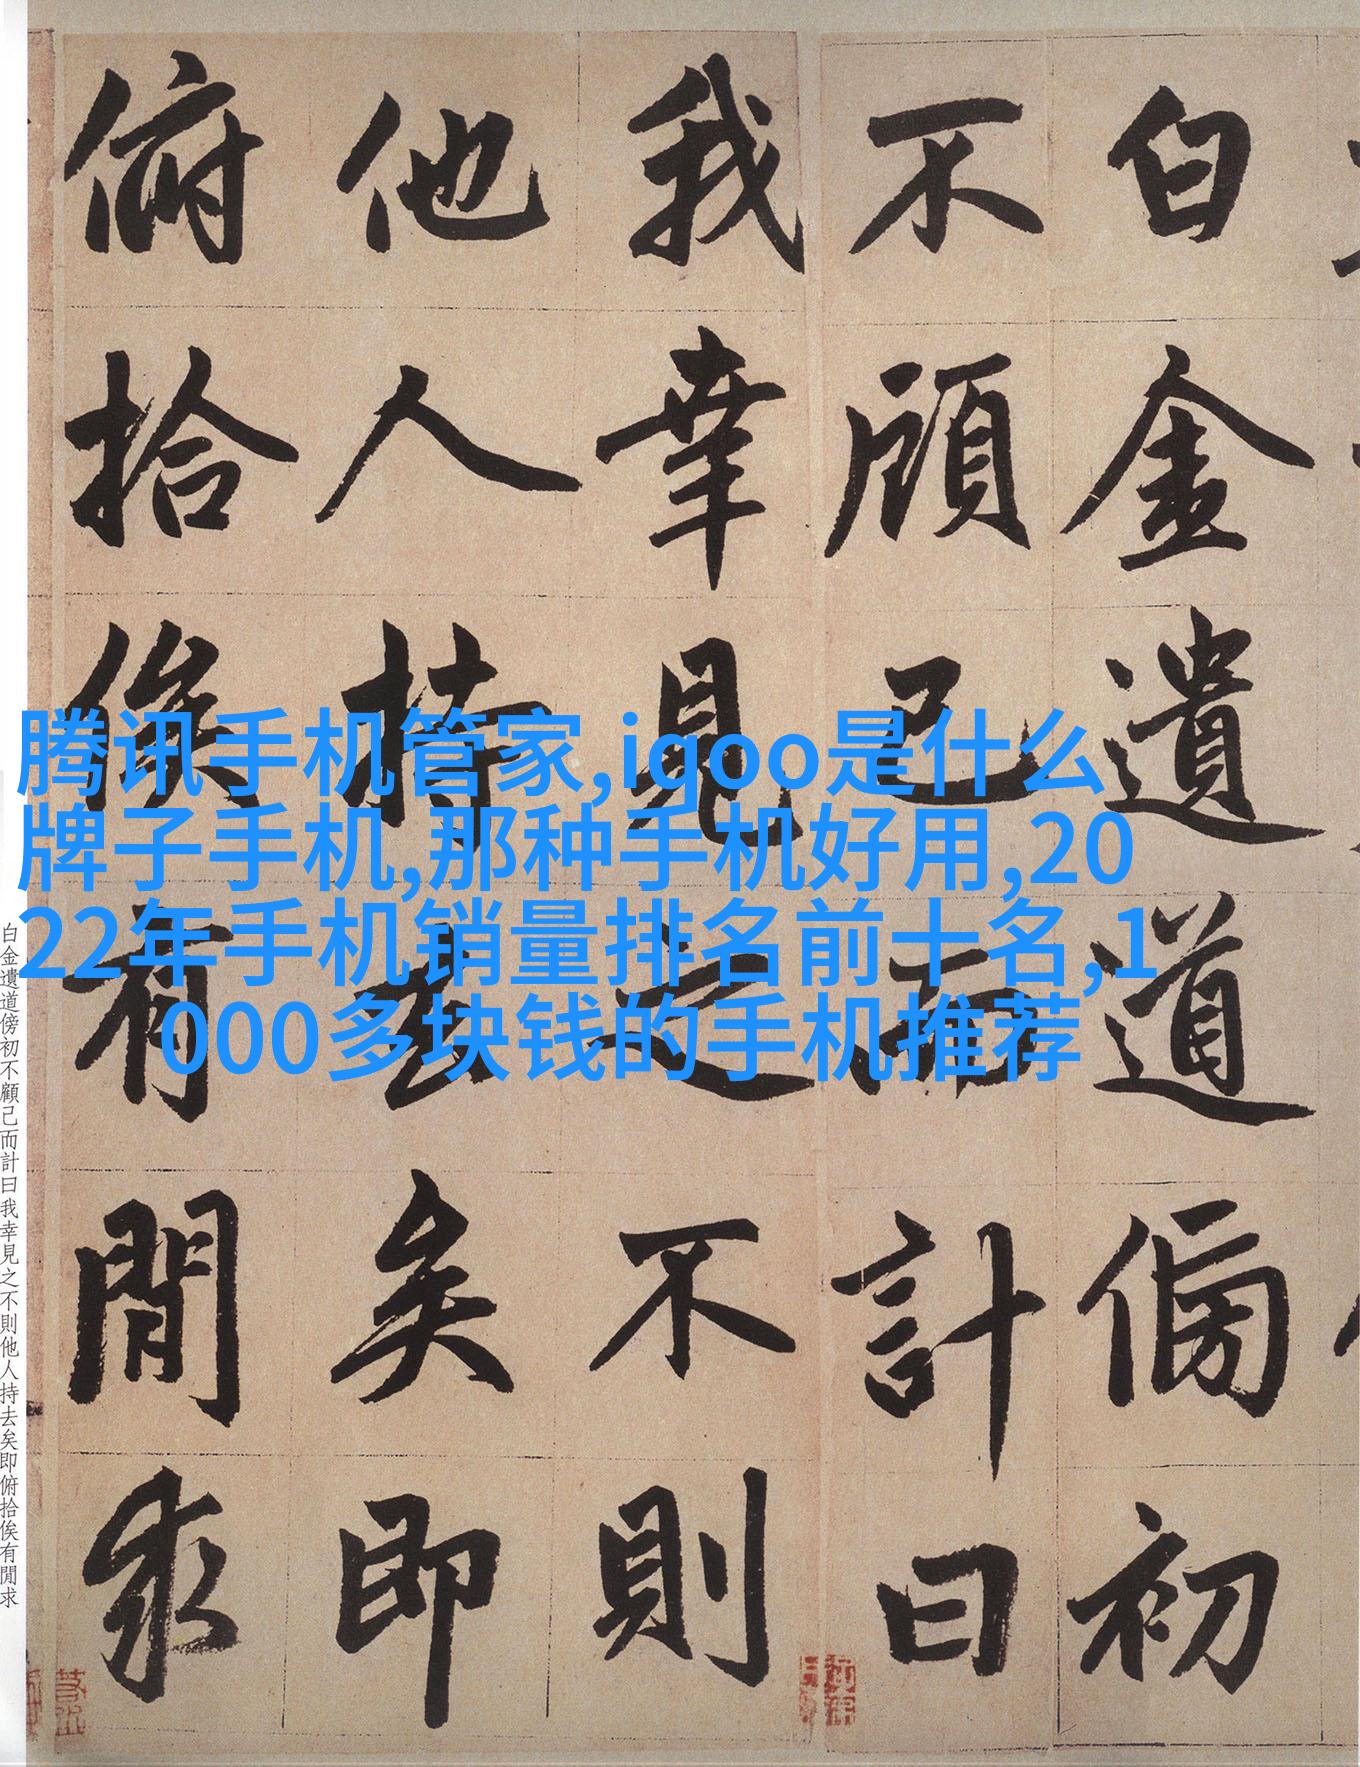 白金遺道傍初
不顧己而計曰
我幸見之不則
他人持去矣即
俯拾俟有閒求
腾讯手机管家,iqoo是什么
牌子手机,那种手机好用,20
22年手机销量排名前十名,1
000多块钱的手机推荐
白金遺道傍初不顧己而計曰我幸見之不則他人持去矣即俯拾俟有閒求